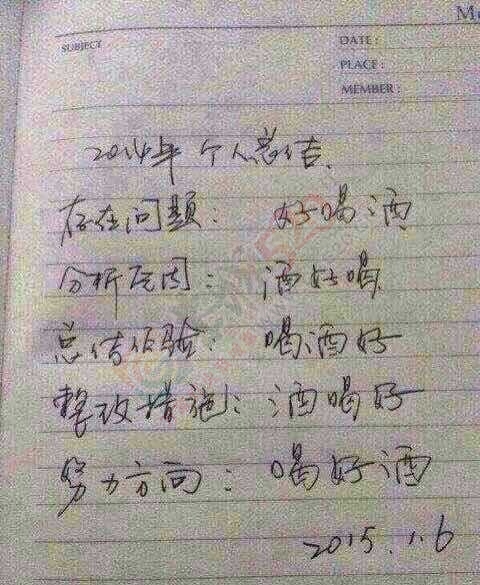 Me
SUBJECT
DATE:
PLACE:
MEMBER:
2014年 个人总结
存在问题: 好喝酒
分析原因: 酒好喝
总结经验: 喝酒好
整改措施: 酒喝好
努力方向: 喝好酒
2015.1.6